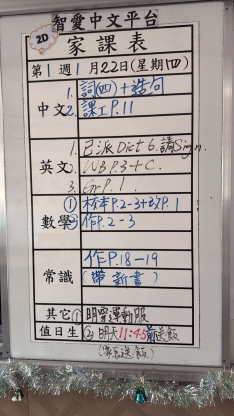 智愛中文平台
2D
家課表
第1週1月22日(星期四)
中文
1. 詞(四)+造句
2. 課工P.11
英文
1. 已派Dict 6.請Sign.
2. WB P.3+C.
3. Gr P.1.
數學
① 校本P.2-3+改P.1
② 作P.2-3
常識
作P.18-19
(帶新書)
其它
① 明穿運動服
值日生
② 明天11:45前送飯
(家長送飯)